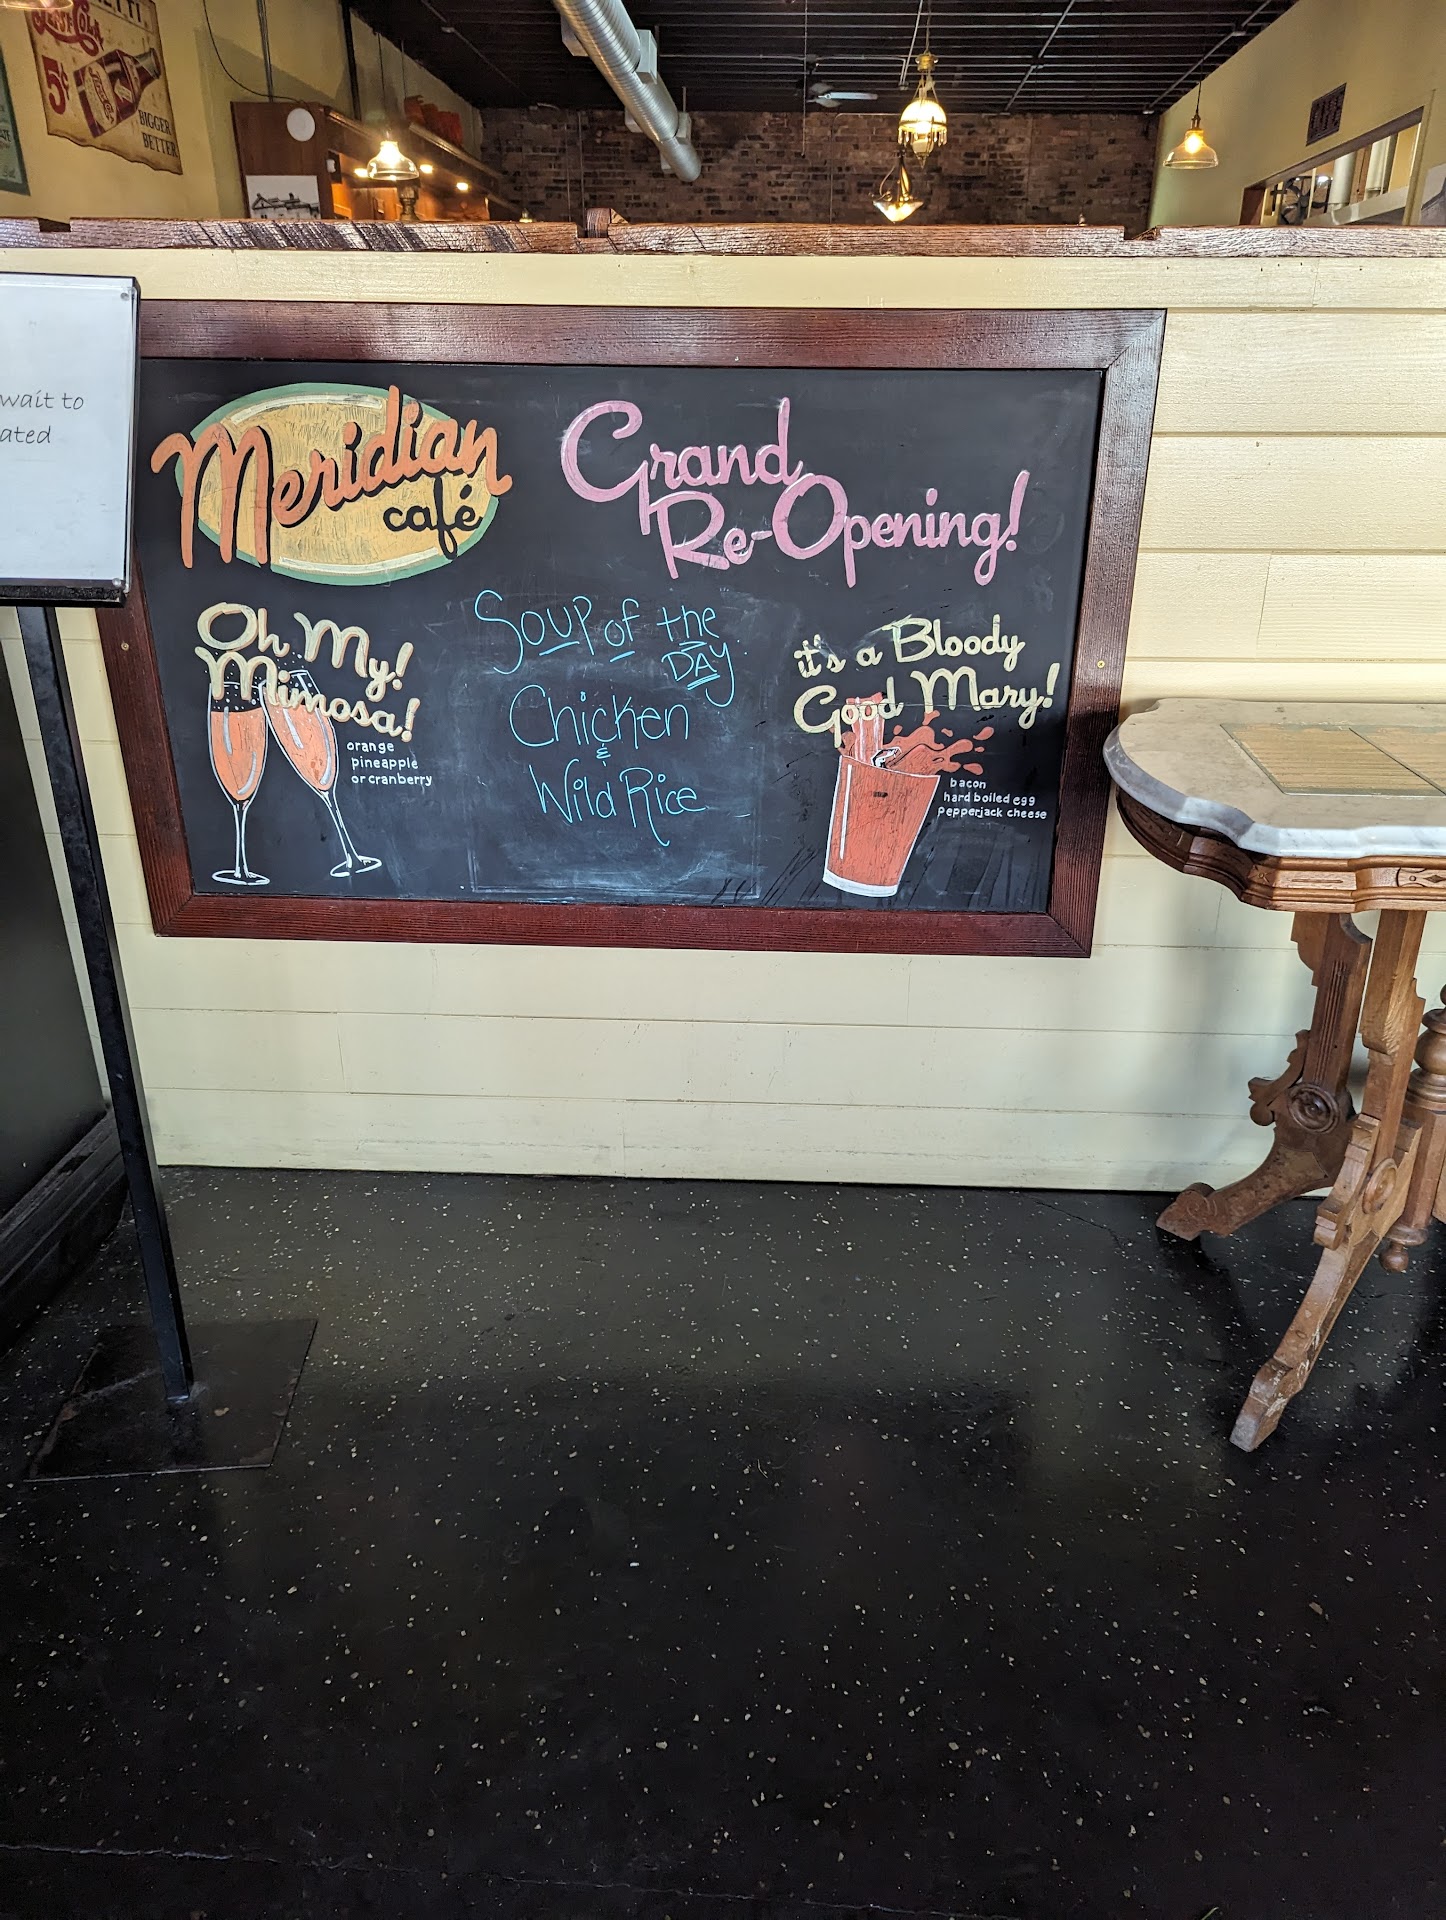 Cola
5¢
BIGGER
BETTER
wait to
ated
Meridian
café
Grand
Re-Opening!
Oh My!
Mimosa!
orange
pineapple
or cranberry
Soup of the
DAY
Chicken
&
Wild Rice
it's a Bloody
Good Mary!
bacon
hard boiled egg
pepperjack cheese